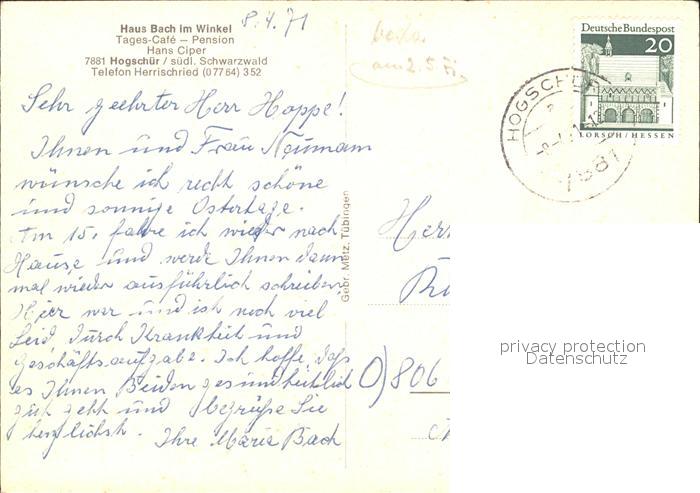 8.4.71
Haus Bach im Winkel
Tages-Café – Pension
Hans Ciper
7881 Hogschür / südl. Schwarzwald
Telefon Herrischried (07764) 352
am 2.5.71
Deutsche Bundespost
20
LORSCH/HESSEN
HOGSCHÜR
7881
Sehr geehrter Herr Hoppe!
Ihnen und Frau Neumann
wünsche ich recht schöne
und sonnige Ostertage.
Am 15. fahre ich wieder nach
Hause und werde Ihnen dann
mal wieder ausführlich schreiben.
Hier war und ist noch viel
Leid durch Krankheit und
Geschäftsaufgabe. Ich hoffe, daß
es Ihnen Beiden gesundheitlich
gut geht und begrüße Sie
herzlichst. Ihre Maria Bach
Gebr. Metz, Tübingen
Herr
806
privacy protection
Datenschutz